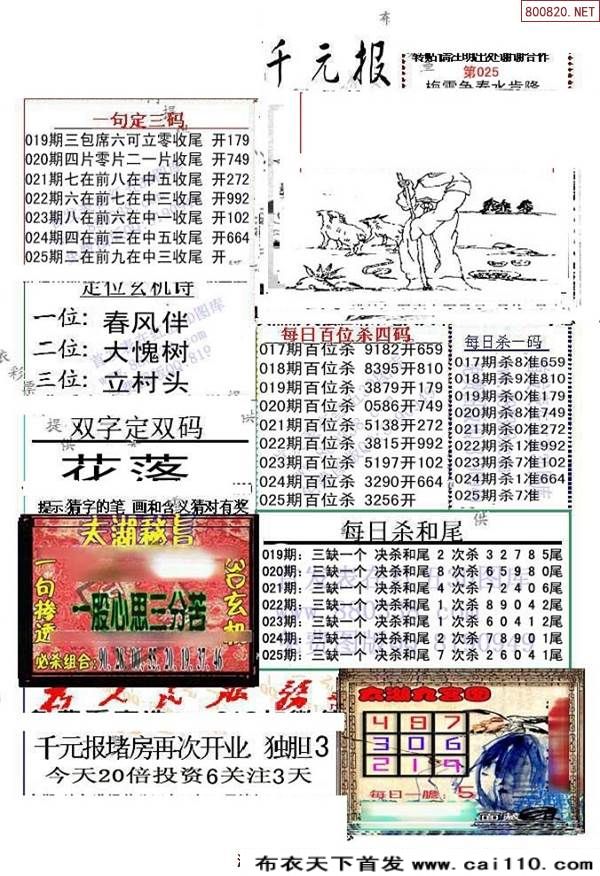 800820.NET
布
千元报
转贴请注明出处谢谢合作
第025
梅雪争春水肯降
一句定三码
019期三包席六可立零收尾 开179
020期四片零片二一片收尾 开749
021期七在前八在中五收尾 开272
022期六在前七在中三收尾 开992
023期八在前六在中一收尾 开102
024期四在前三在中五收尾 开664
025期二在前九在中三收尾 开
定位玄机诗
一位: 春风伴
二位: 大愧树
三位: 立村头
双字定双码
花落
提示:猜字的笔 画和含义猜对有奖
每日百位杀四码
017期百位杀 9182开659
018期百位杀 8395开810
019期百位杀 3879开179
020期百位杀 0586开749
021期百位杀 5138开272
022期百位杀 3815开992
023期百位杀 5197开102
024期百位杀 3290开664
025期百位杀 3256开
每日杀一码
017期杀8准659
018期杀9准810
019期杀0准179
020期杀8准749
021期杀0准272
022期杀1准992
023期杀7准102
024期杀2准664
025期杀7准
每日杀和尾
019期: 三缺一个 决杀和尾 2 次杀 3 2 7 8 5尾
020期: 三缺一个 决杀和尾 8 次杀 5 0 9 8 0尾
021期: 三缺一个 决杀和尾 4 次杀 7 2 4 0 6尾
022期: 三缺一个 决杀和尾 1 次杀 8 9 0 4 2尾
023期: 三缺一个 决杀和尾 1 次杀 6 0 4 1 2尾
024期: 三缺一个 决杀和尾 2 次杀 0 8 9 0 1尾
025期: 三缺一个 决杀和尾 7 次杀 2 6 0 4 1尾
太湖秘鸟
一句搀透
3D玄机
一股心思三分苦
必杀组合:
千元报堵房再次开业 独胆3
今天20倍投资6关注3天
太湖九宫图
4 8 7
3 0 6
2 1 9
每日一胆: 5
西藏
布衣天下首发 www.cai110.com